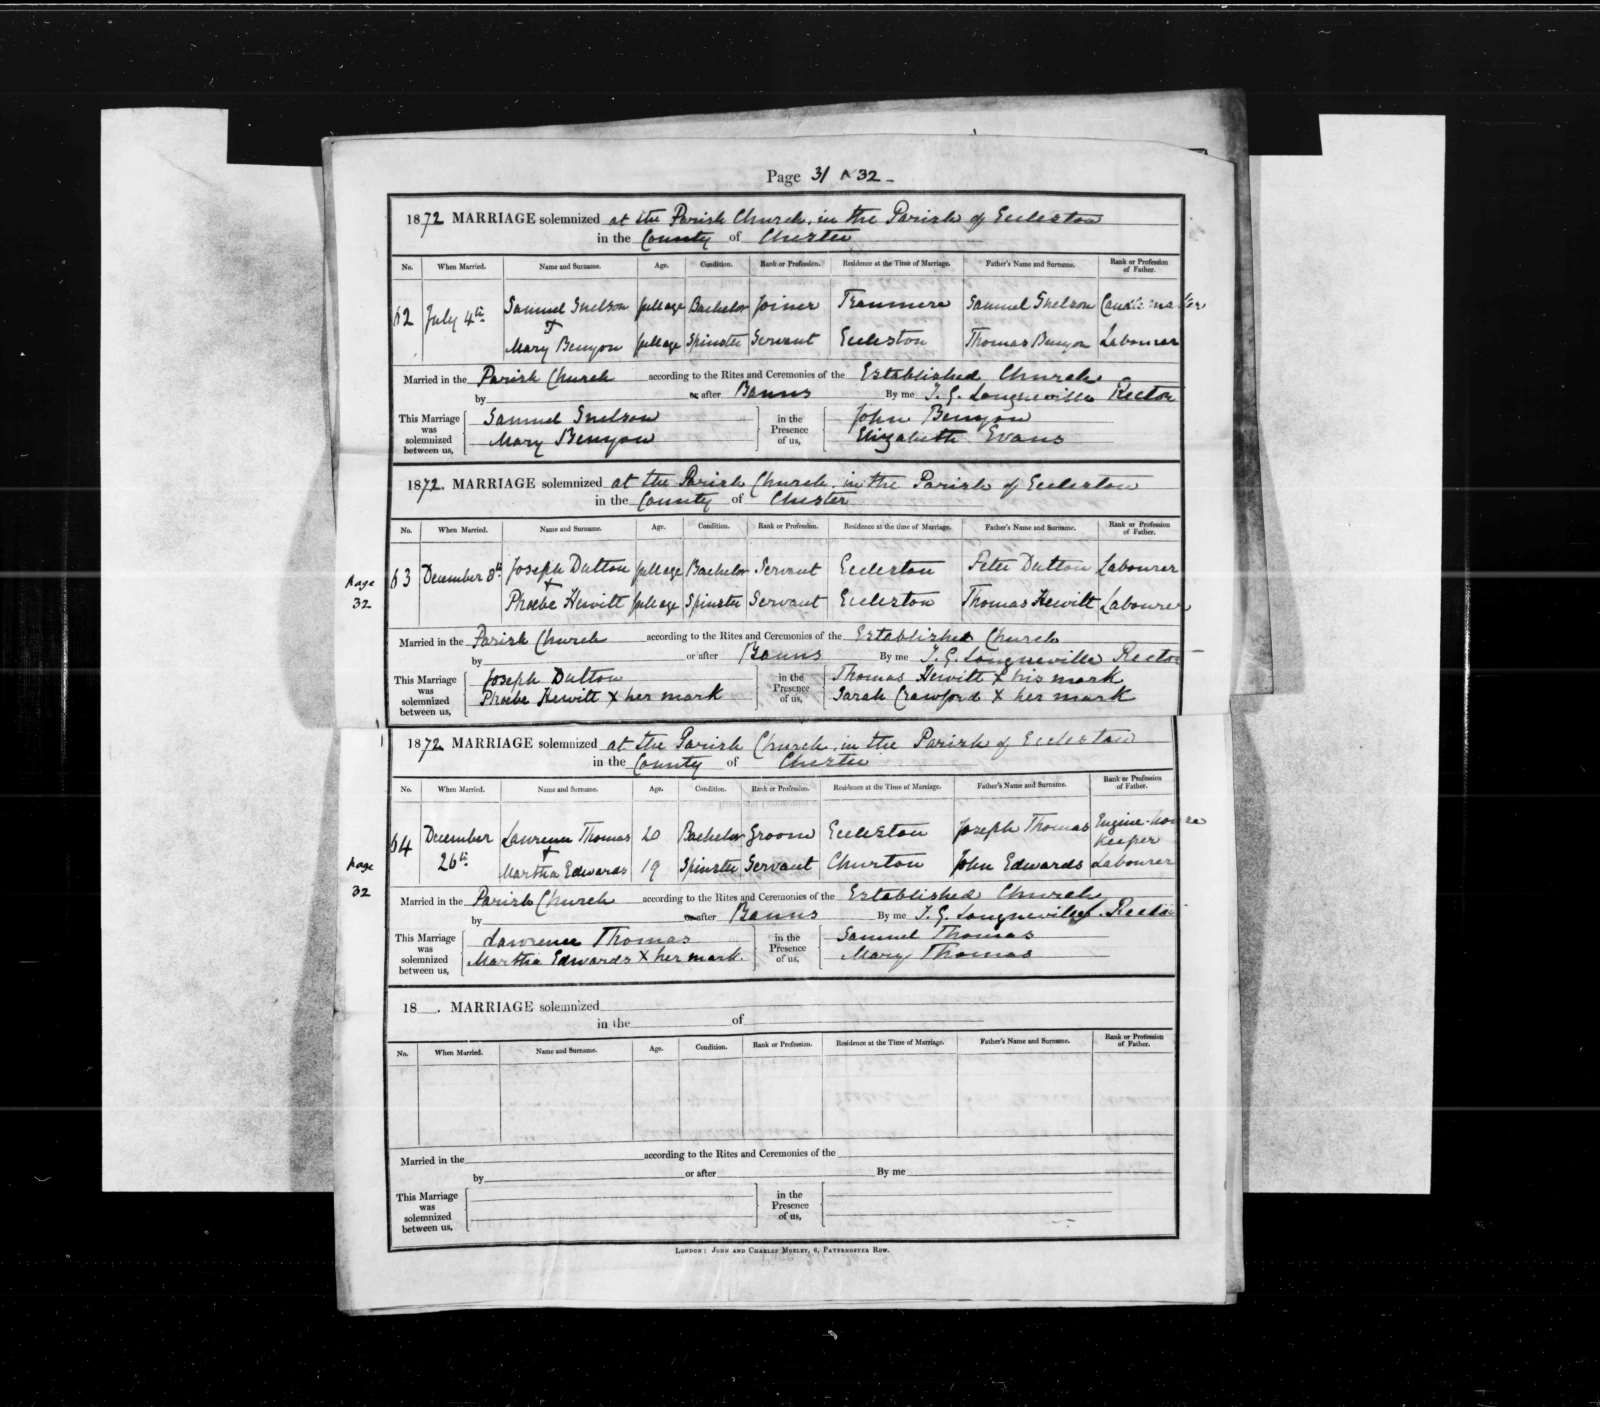 Page 31 & 32 -
1872 MARRIAGE solemnized at the Parish Church in the Parish of Eccleston
in the County of Chester
No. When Married. Name and Surname. Age. Condition. Rank or Profession. Residence at the Time of Marriage. Father's Name and Surname. Rank or Profession of Father.
62 July 4th Samuel Snelson full age Bachelor Joiner Tranmere Samuel Snelson Candle maker
+
Mary Benyon full age Spinster Servant Eccleston Thomas Benyon Labourer
Married in the Parish Church according to the Rites and Ceremonies of the Established Church
by or after Banns By me Rector
This Marriage was solemnized between us, Samuel Snelson in the Presence of us, John Benyon
Mary Benyon Elizabeth Evans
1872. MARRIAGE solemnized at the Parish Church in the Parish of Eccleston
in the County of Chester
No. When Married. Name and Surname. Age. Condition. Rank or Profession. Residence at the time of Marriage. Father's Name and Surname. Rank or Profession of Father.
Page 32
63 December 8th Joseph Dutton full age Bachelor Servant Eccleston Peter Dutton Labourer
+
Phoebe Hewitt full age Spinster Servant Eccleston Thomas Hewitt Labourer
Married in the Parish Church according to the Rites and Ceremonies of the Established Church
by or after Banns By me Rector
This Marriage was solemnized between us, Joseph Dutton in the Presence of us, Thomas Hewitt x his mark
Phoebe Hewitt x her mark Sarah Crawford x her mark
1872 MARRIAGE solemnized at the Parish Church in the Parish of Eccleston
in the County of Chester
No. When Married. Name and Surname. Age. Condition. Rank or Profession. Residence at the Time of Marriage. Father's Name and Surname. Rank or Profession of Father.
Page 32
64 December 26th Lawrence Thomas 20 Bachelor Groom Eccleston Joseph Thomas Engine-house Keeper
+
Martha Edwards 19 Spinster Servant Churton John Edwards Labourer
Married in the Parish Church according to the Rites and Ceremonies of the Established Church
by or after Banns By me Rector
This Marriage was solemnized between us, Lawrence Thomas in the Presence of us, Samuel Thomas
Martha Edwards x her mark Mary Thomas
18 . MARRIAGE solemnized
in the of
No. When Married. Name and Surname. Age. Condition. Rank or Profession. Residence at the Time of Marriage. Father's Name and Surname. Rank or Profession of Father.
Married in the according to the Rites and Ceremonies of the
by or after By me
This Marriage was solemnized between us, in the Presence of us,
LONDON: JOHN AND CHARLES MOZLEY, 6, PATERNOSTER ROW.